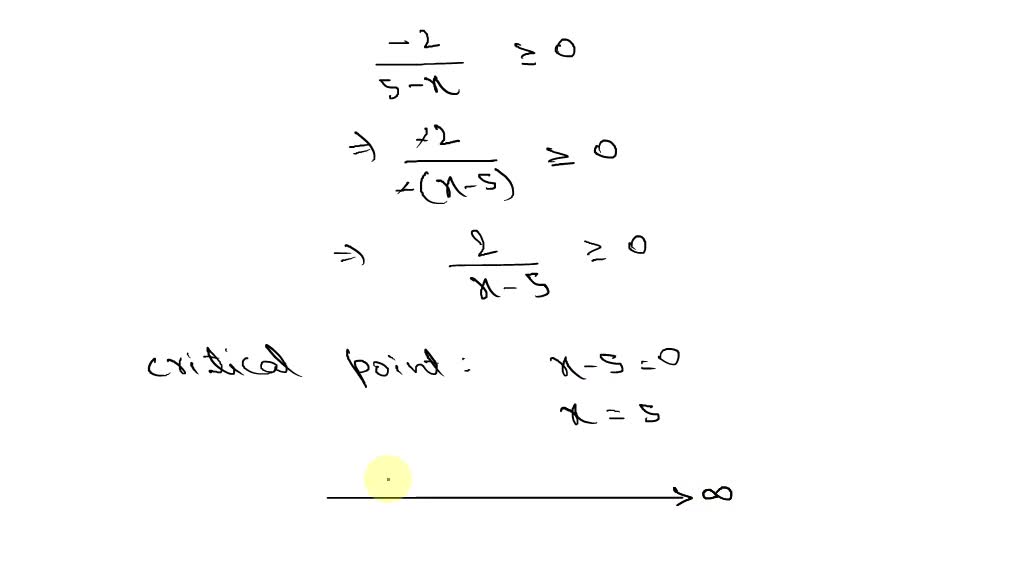 -2 / 5-x ≥ 0
⇒ +2 / +(x-5) ≥ 0
⇒ 2 / x-5 ≥ 0
critical point: x-5=0
x=5
∞